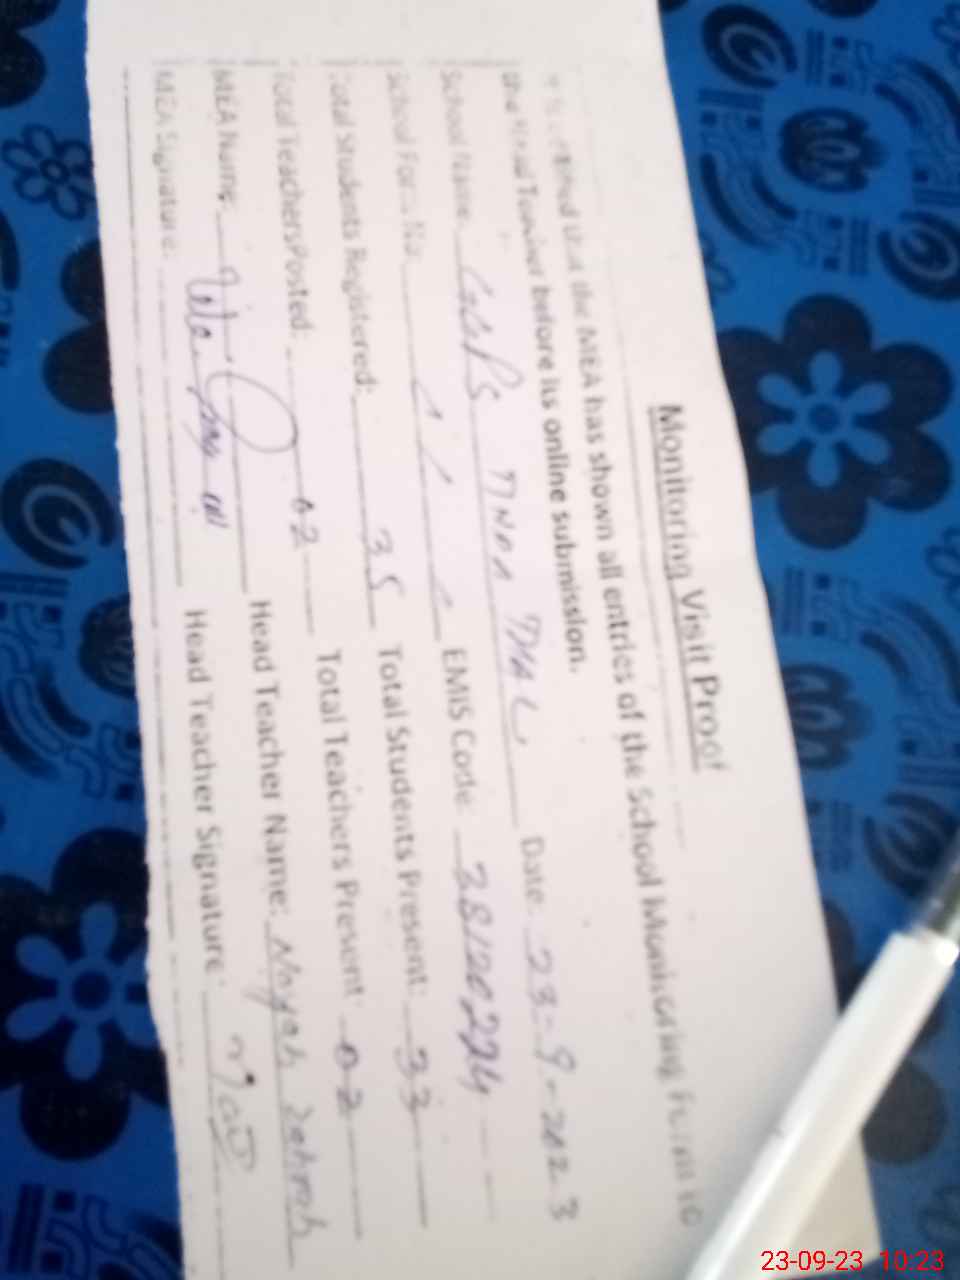 Monitoring Visit Proof
that the MEA has shown all entries of the School Monitoring Form to
the Head Teacher before its online submission.
School Name Date: 23-9-2023
School Form No. EMIS Code 38120224
Total Students Registered: 35 Total Students Present: 33
Total Teachers Posted: 02 Total Teachers Present: 02
MEA Name: Head Teacher Name: Nayab Zahrah
MEA Signature: Head Teacher Signature:
23-09-23 10:23